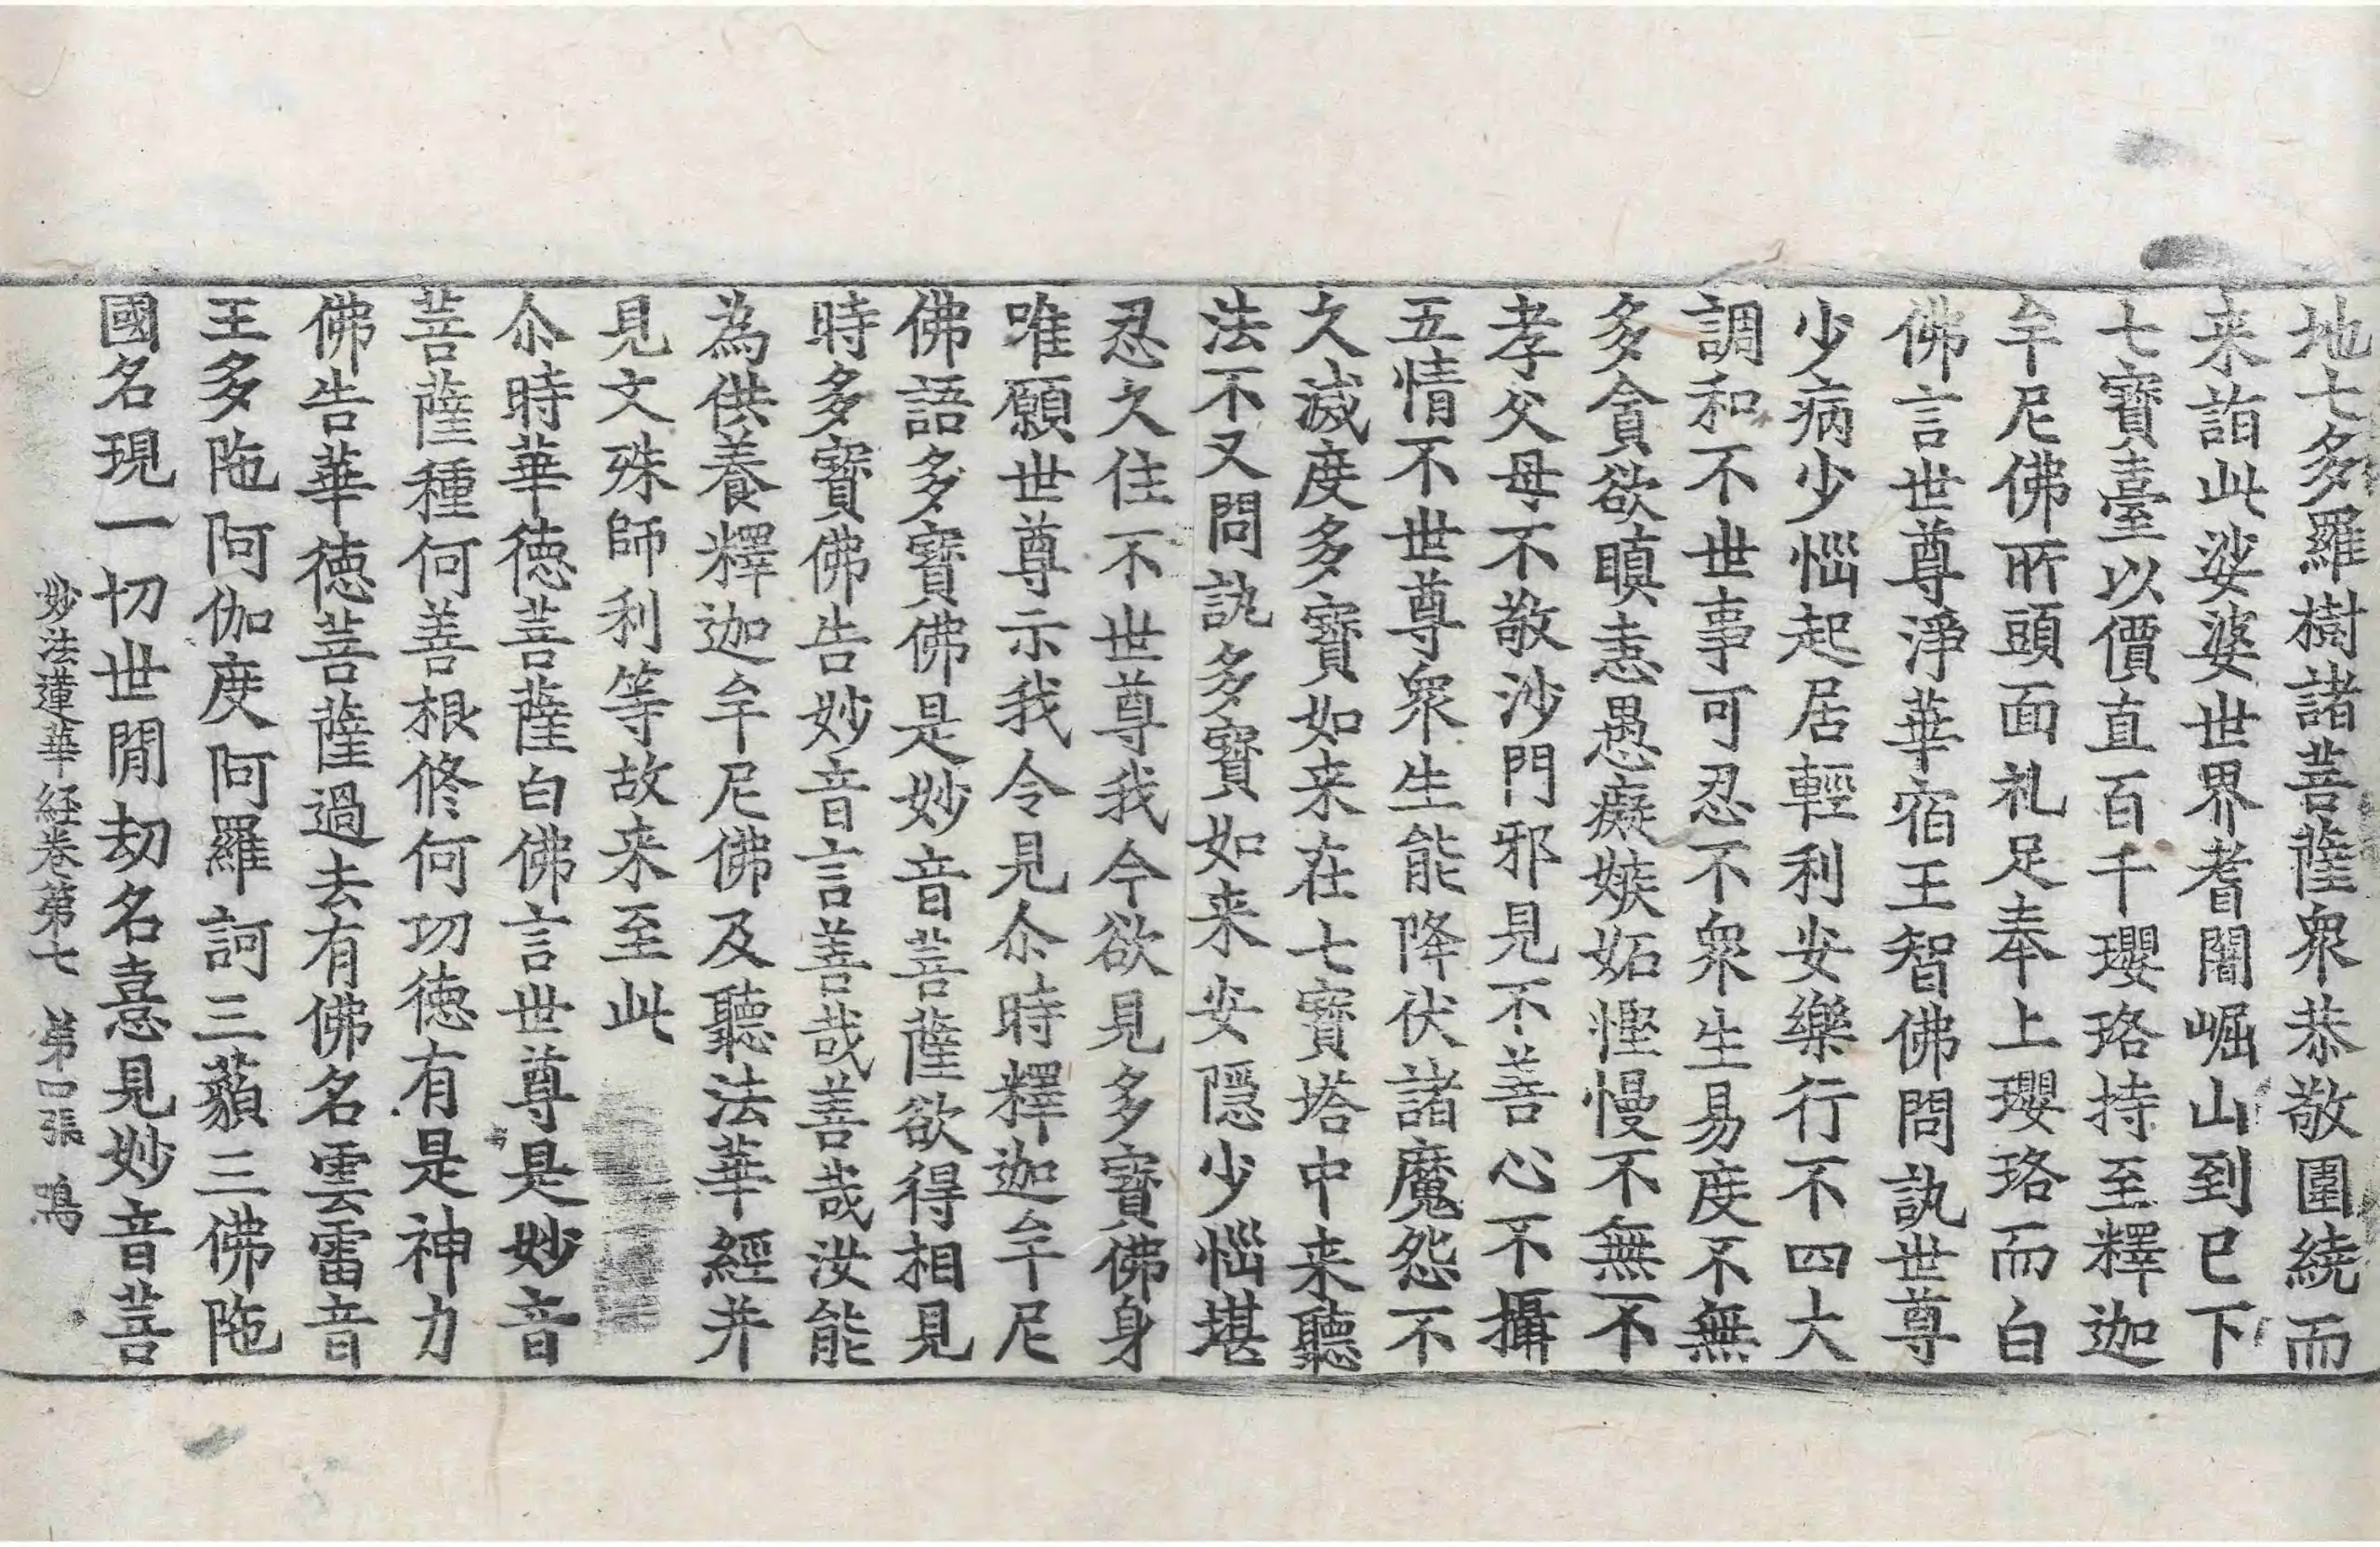 地七多羅樹諸菩薩衆恭敬圍繞而
来詣此娑婆世界耆闍崛山到已下
七寶臺以價直百千瓔珞持至釋迦
牟尼佛所頭面礼足奉上瓔珞而白
佛言世尊淨華宿王智佛問訊世尊
少病少惱起居輕利安樂行不四大
調和不世事可忍不衆生易度不無
多貪欲瞋恚愚癡嫉妬慳慢不無不
孝父母不敬沙門邪見不善心不攝
五情不世尊衆生能降伏諸魔怨不
久滅度多寶如来在七寶塔中来聽
法不又問訊多寶如来安隱少惱堪
忍久住不世尊我今欲見多寶佛身
唯願世尊示我令見尒時釋迦牟尼
佛語多寶佛是妙音菩薩欲得相見
時多寶佛告妙音言善哉善哉汝能
為供養釋迦牟尼佛及聽法華經并
見文殊師利等故来至此
尒時華徳菩薩白佛言世尊是妙音
菩薩種何善根修何功徳有是神力
佛告華徳菩薩過去有佛名雲雷音
王多陁阿伽度阿羅訶三藐三佛陁
國名現一切世間劫名憙見妙音菩
妙法蓮華経卷第七 第口張